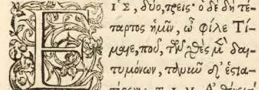 ΕΙΣ, δύο, τρεῖς· ὁ δὲ δὴ τέ-
ταρτος ἡμῖν, ὦ φίλε Τί-
μαιε, ποῦ, τῶν χθὲς μὲν δαι-
τυμόνων, τὸ νῦν δ' ἑστια-